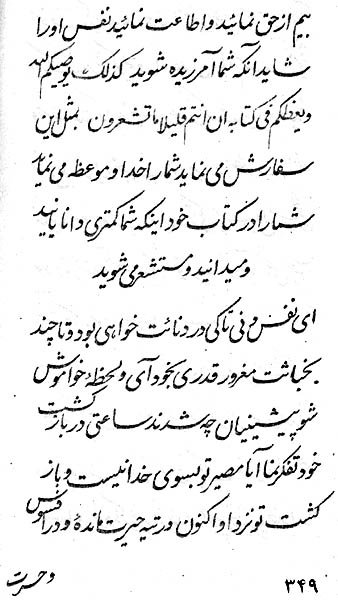 بیم از حق نمائید و اطاعت نمائید نفس او را
شاید آنکه شما آمرزیده شوید کذلک یوصیکم الله
و یعظکم فی کتابه ان انتم قلیلا ما تشعرون بمثل این
سفارش می نماید شما را خدا و موعظه می نماید
شما را در کتاب خود اینکه شما کمتری دانایانید
و میدانید و مستشعر می شوید
ای نفس دنی تا کی در دنائت خواهی بود و تا چند
بخباثت مغرور قدری بخود آی و لحظهٔ خواموش
شو پیشینیان چه شدند ساعتی در بازگشت
خود تفکر نما آیا مصیر تو بسوی خدا نیست و باز
گشت تو نزد او اکنون در تیه حیرت ماندهٔ و در افسوس
و حسرت
۳۴۹